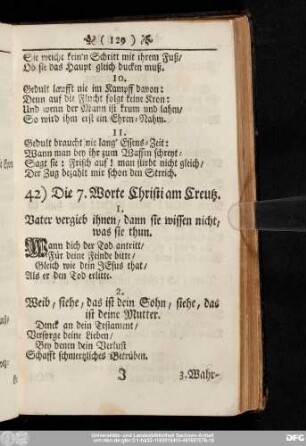 (129)
Sie weicht kein'n Schritt mit ihrem Fuß/
Ob sie das Haupt gleich ducken muß.
10.
Gedult laufft nie im Kampff davon:
Denn auf die Flucht folgt keine Kron:
Und wenn der Mann ist krum und lahm/
So wird ihm erst ein Ehren-Nahm.
11.
Gedult braucht nie lang' Essens-Zeit:
Wann man bey ihr zum Waffen schreyt/
Sagt sie: Frisch auf! man stirbt nicht gleich/
Der Zug bezahlt mir schon den Streich.
42) Die 7. Worte Christi am Creutz.
1.
Vater vergieb ihnen, dann sie wissen nicht,
was sie thun.
Wann dich der Tod antritt/
Für deine Feinde bitte/
Gleich wie dein JEsus that/
Als er den Tod erlitte.
2.
Weib, siehe, das ist dein Sohn, siehe, das
ist deine Mutter.
Denck an dein Testament/
Versorge deine Lieben/
Bey denen dein Verlust
Schafft schmertzliches Betrüben.
J
3. Wahr-